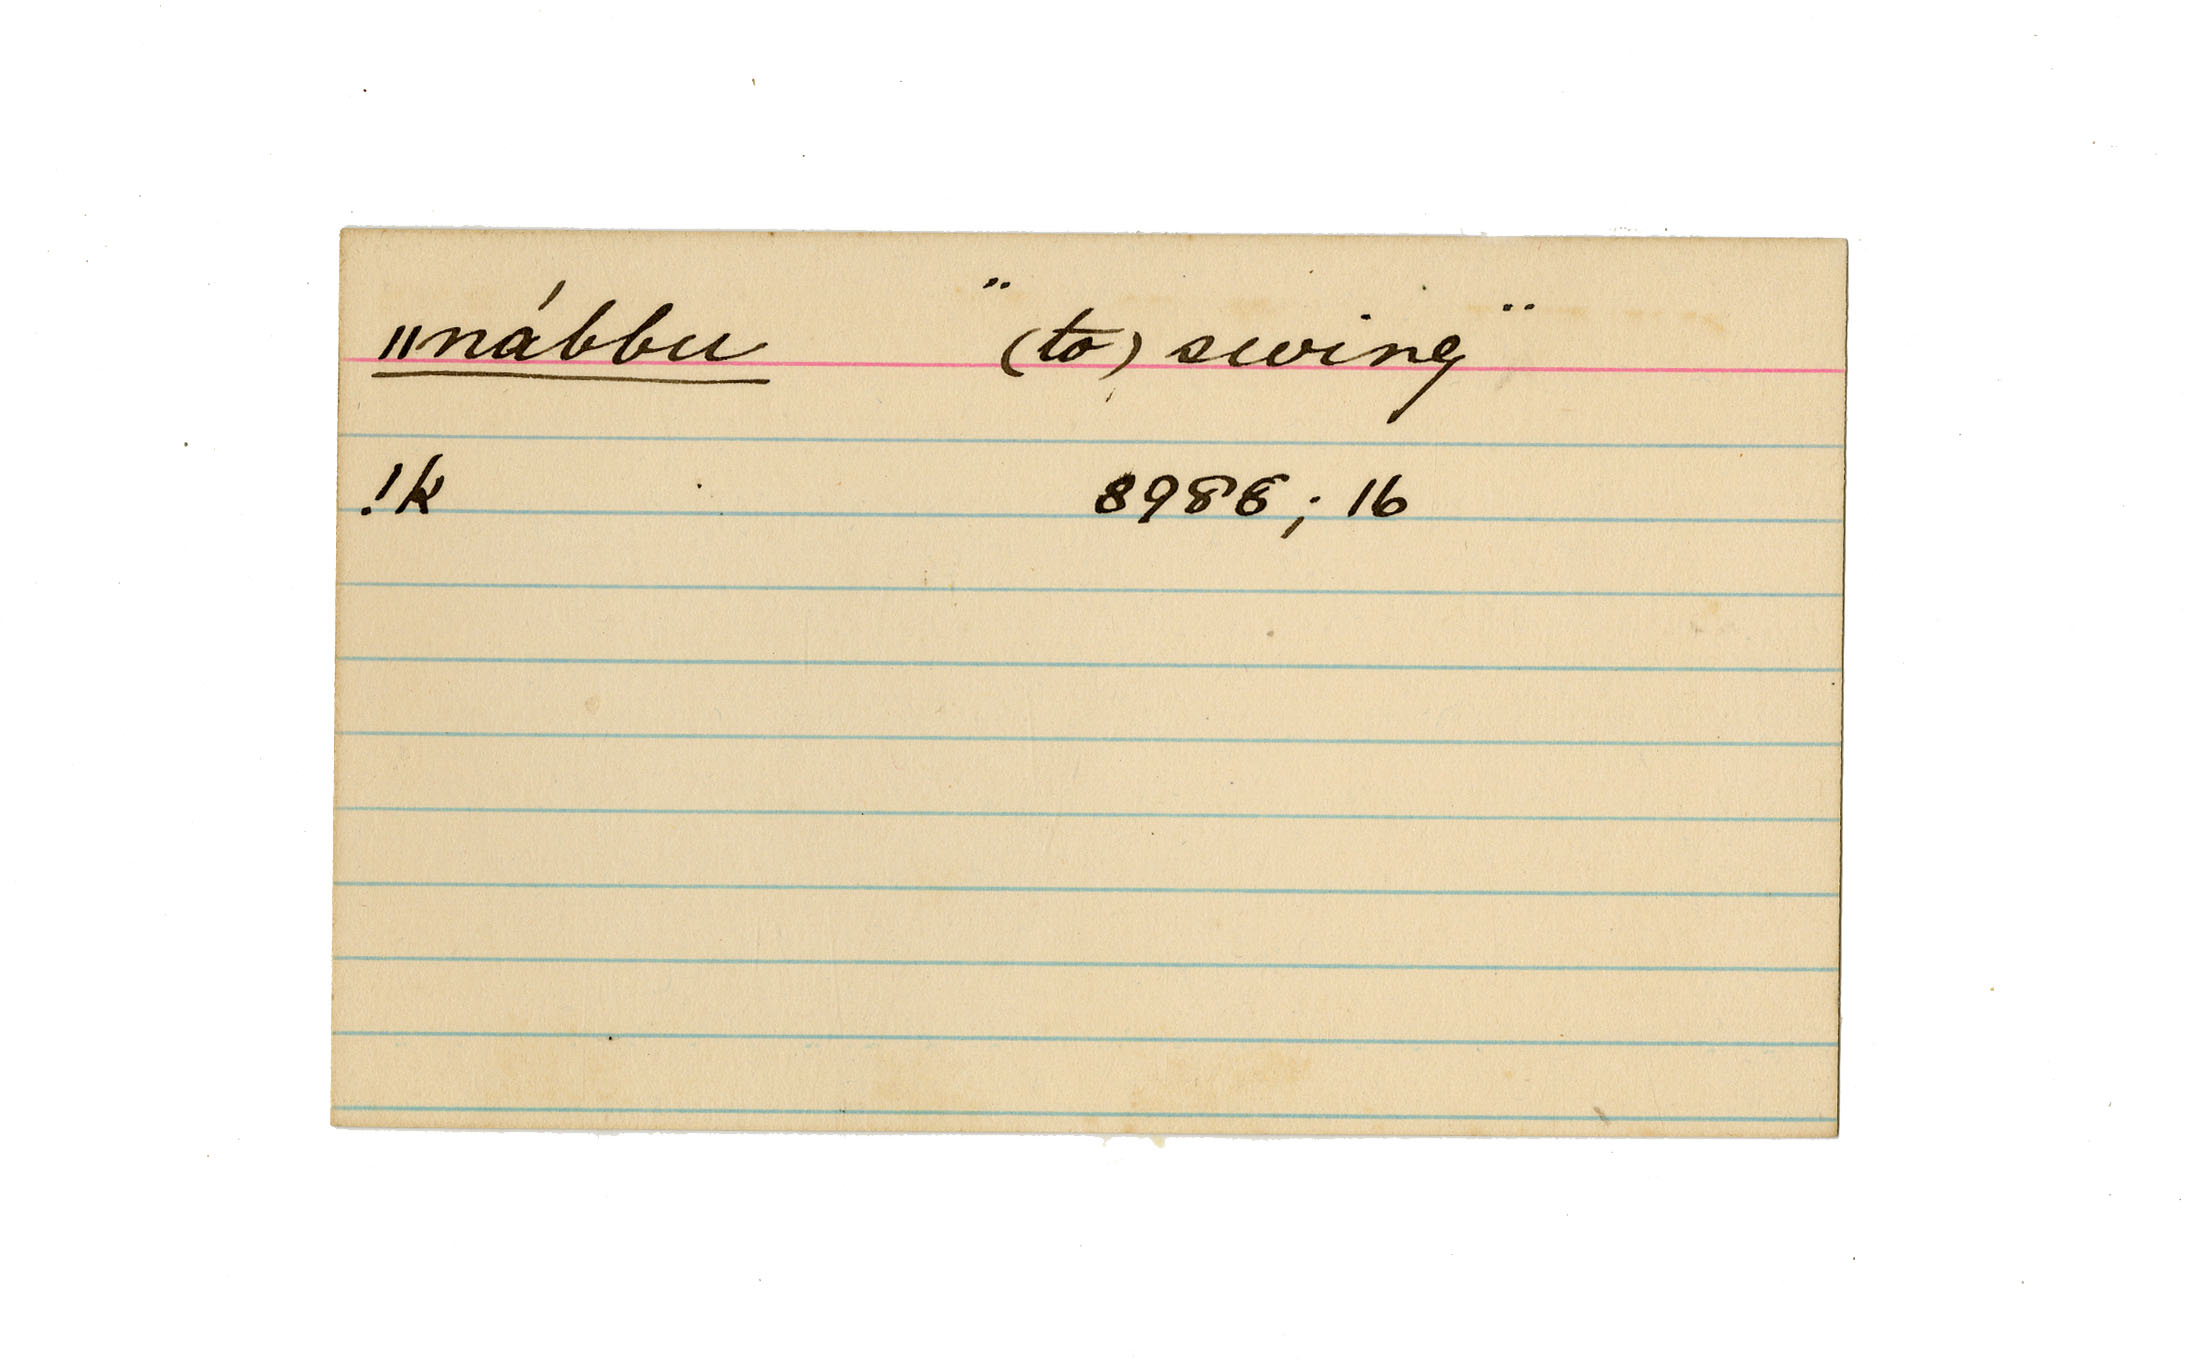 ǁnábbu "(to) swing"
!k 8988; 16